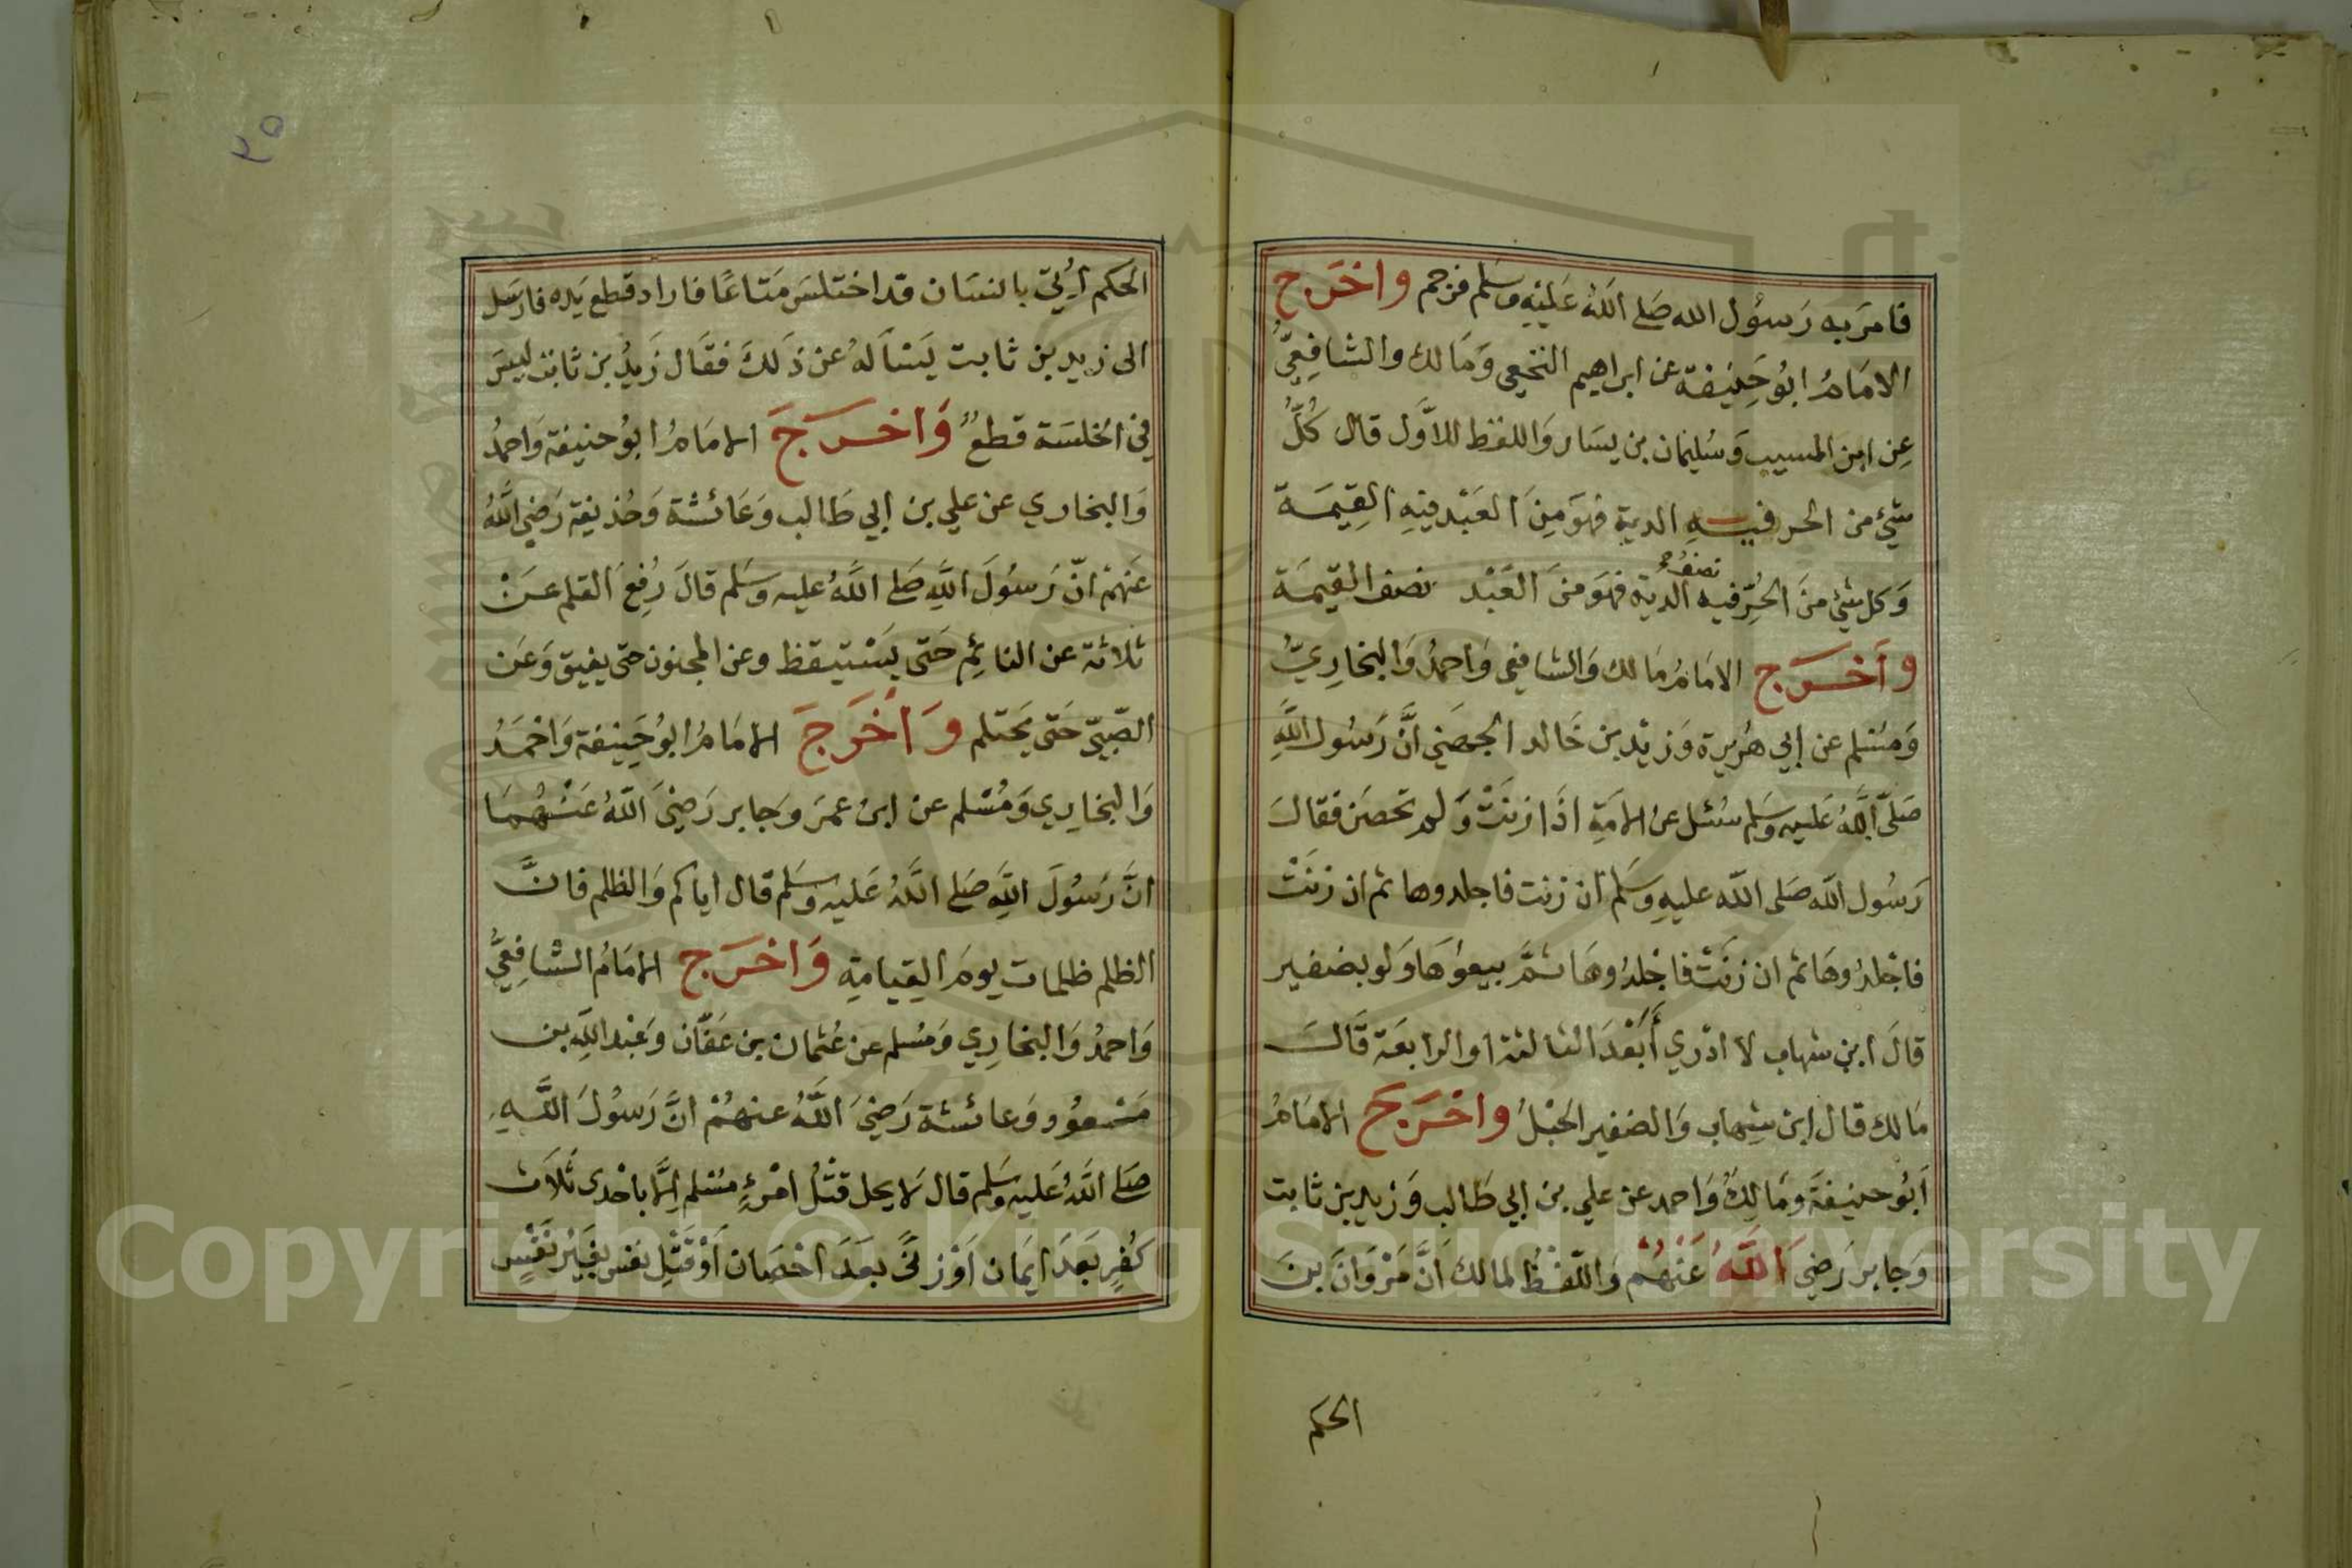 فامَر به رَسُول الله صَلى اللهُ عَليْهِ وسَلم فرجم واخرَج
الامَامُ ابُو حَنِيْفة عن ابراهيم النخعي وَمَالك والشافِعِيُّ
عِن ابن المسيب وَسُليمان بن يسَار وَاللفظ للاوَّل قال كُلُّ
شيْء من الحر فيهِ الدية فهوَ مِنَ العَبْد فيْهِ القِيمَة
وَكل شيْء منَ الحُرِّ فيه نصفُ الدية فهوَ منَ العَبْد نصف القيمَة
وَاَخرَج الامَامُ مَالك وَالشافعي وَاحمدُ وَالبخارِيّ
وَمسْلم عن ابي هُرَيرة وَزيْد بن خَالد الجهَني اَنَّ رَسُول اللهِ
صَلّى اللهُ عَليه وسَلم سُئل عن الامَةِ اذَا زنَتْ وَلم تحصَن فقالَ
رَسُول الله صَلى الله عليهِ وسَلم ان زنت فاجلدوها ثم ان زنَتْ
فاجْلدُوهَا ثم ان زنَتْ فاجْلدُوهَا ثمَّ بيعوُهَا وَلو بضفير
قالَ ابن شهاب لا ادْري اَبَعْدَ الثالثة او الرابعَة قَالَ
مَالك قال ابن شِهاب وَالضفير الحَبْلُ واخْرَج الامَامُ
اَبُو حنيفَة ومَالِكٌ وَاحمد عن علي بن ابي طَالب وَزيد بن ثابت
وَجابر رَضيَ اَللهُ عَنْهُمْ وَاللّفْظُ لمالك اَنَّ مَرْوَانَ بنَ
الحكم
٣٥
الحكم اُتِيَ بانسَان قد اختلسَ مَتَاعًا فاراد قطع يَده فارسَل
الى زيد بن ثابت يَسْاَلهُ عن ذَلكَ فقَال زَيدُ بن ثابت ليسَ
في الخلسَة قطعٌ وَاخرَجَ الامَامُ ابُو حنيفة وَاحمدُ
وَالبخاري عن علي بن ابي طَالب وَعَائشة وَحُذيفة رَضي اللهُ
عَنهمْ انّ رَسُولَ اللهِ صَلى اللهُ عليه وسَلم قالَ رُفِعَ القلم عَنْ
ثلاثة عن النائِم حَتى يَسْتيقظ وعن المجنون حتى يفيق وَعَن
الصّبيّ حَتى يَحتلم وَاَخرَجَ الامَامُ ابوُ حَنِيْفة وَاحْمَدُ
وَالبخارِي وَمُسْلم عن ابن عمرَ وجَابر رَضيَ اللهُ عَنْهُمَا
انَّ رَسُولَ اللهِ صَلى اللهُ عَليْه وسَلم قال اياكم وَالظلم فانَّ
الظلم ظلمات يومَ القِيامَةِ وَاخرَج الامَامُ الشافِعيُّ
وَاحمدُ وَالبخارِي وَمُسلم عن عُثمان بن عَفّان وَعَبْد اللهِ بن
مَسْعوُد وَعائشة رَضيَ اللهُ عنهُمْ انَّ رَسُولَ اللهِ
صَلى اللهُ عَليه وسَلم قال لَا يحل قَتْلُ امْرئٍ مسْلم اِلَّا باحْدى ثلَاث
كُفرٍ بَعدَ ايمَان اَوْ زنًى بعَدَ احْصَان اَوْ قَتْلِ نفس بغَيْر نَفْسٍ
Copyright © King Saud University